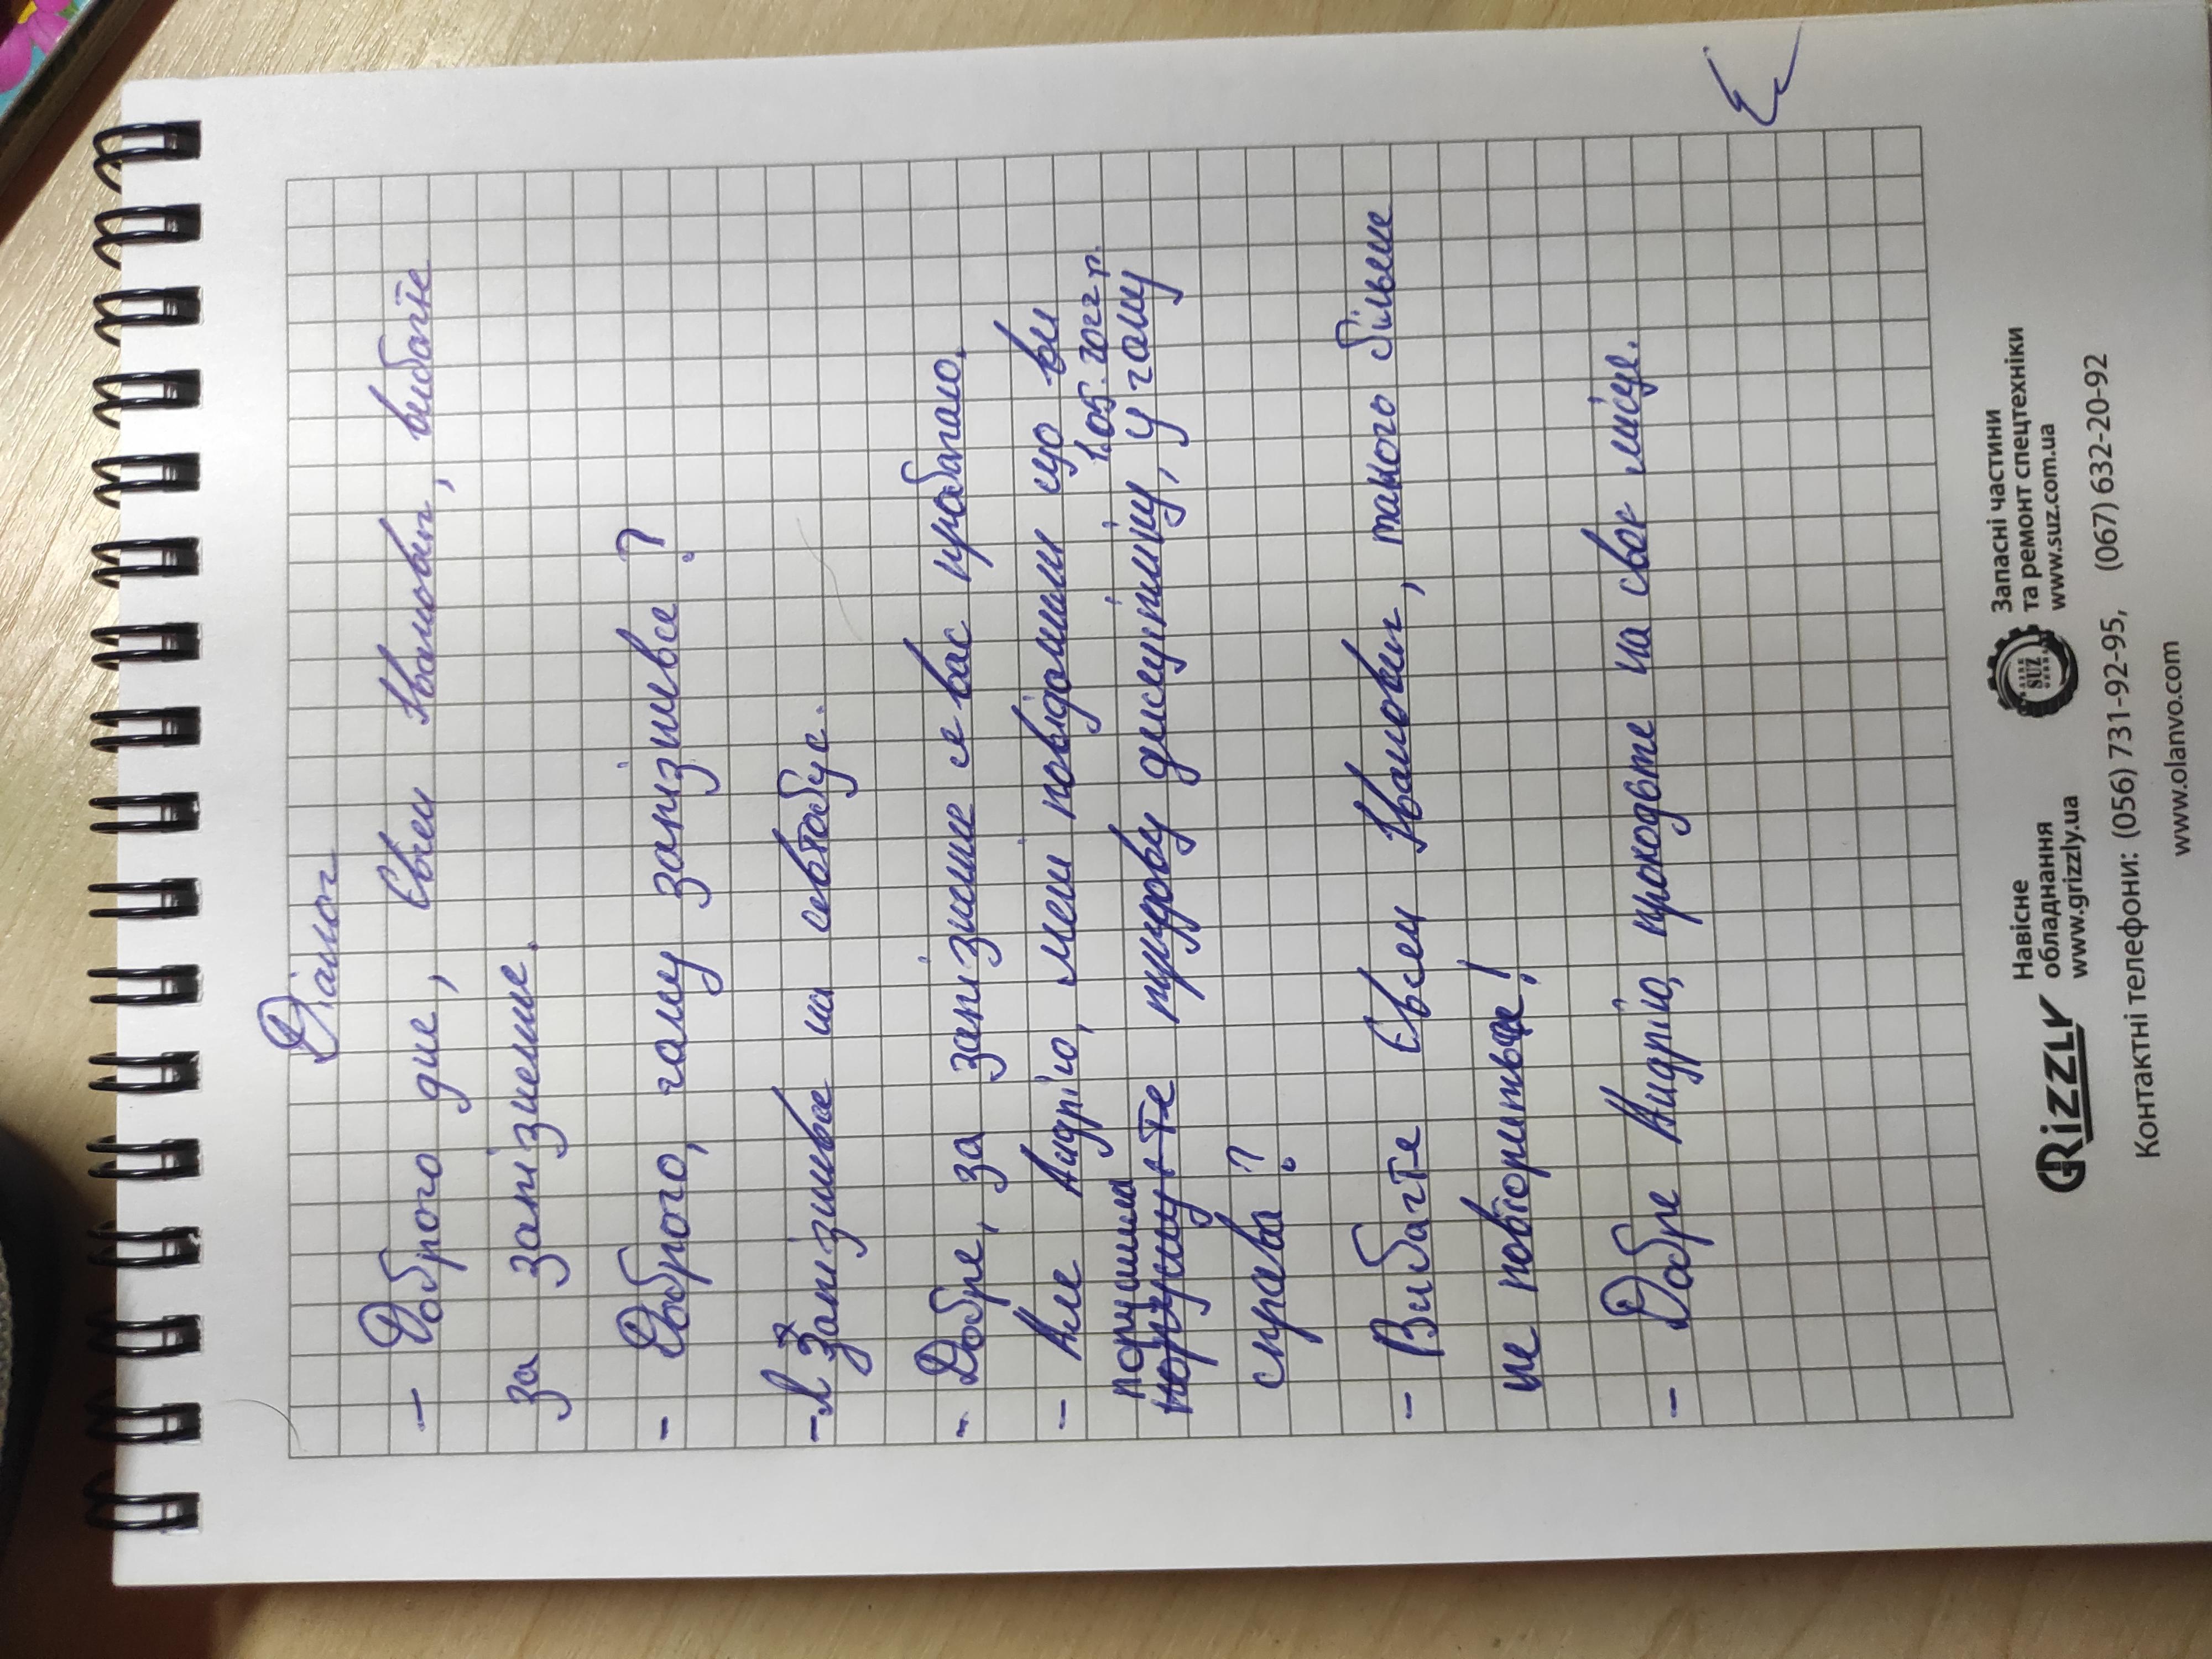 Діалог
- Доброго дня, Євген Іванович, вибачте
за запізнення.
- Доброго, чому запізнився?
- Я запізнився на автобус.
- Добре, за запізнення я вас пробачаю.
- Але Андрію, мені повідомили що ви
порушили 1.05.2022 р.
трудову дисципліну, у чому
справа?
- Вибачте Євген Іванович, такого більше
не повториться!
- Добре Андрію, проходьте на своє місце.
GRIZZLY Навісне обладнання www.grizzly.ua
SUZ Запасні частини та ремонт спецтехніки www.suz.com.ua
Контактні телефони: (056) 731-92-95, (067) 632-20-92
www.olanvo.com